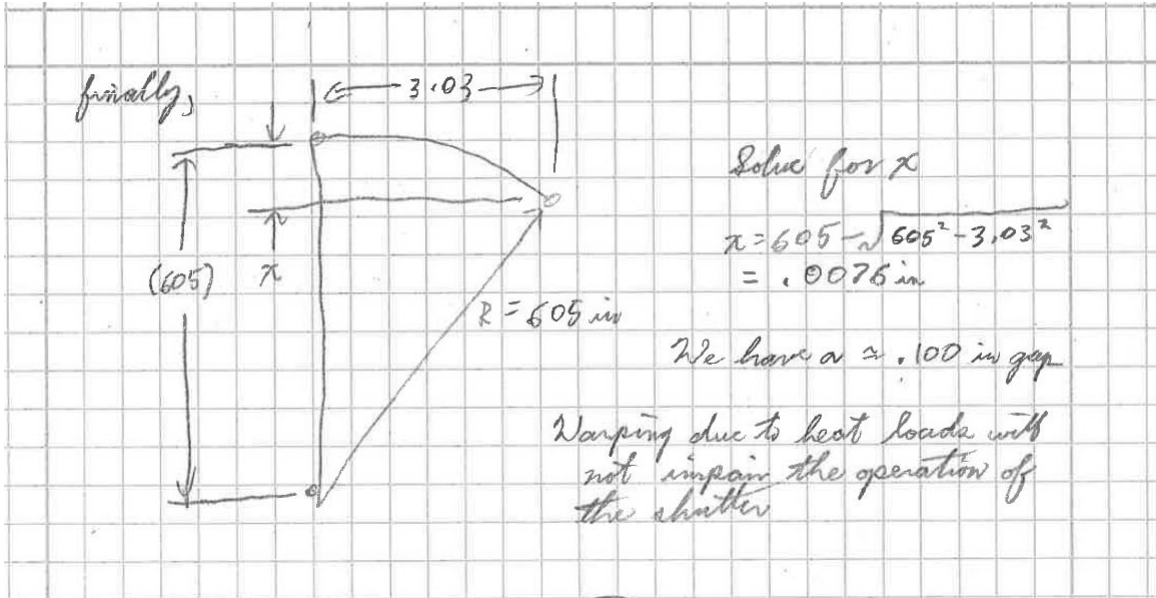 finally,
3.03
(605)
x
R = 605 in
Solve for x
x = 605 - √605² - 3.03²
= .0076 in
We have a ≈ .100 in gap
Warping due to heat loads will
not impair the operation of
the shutter